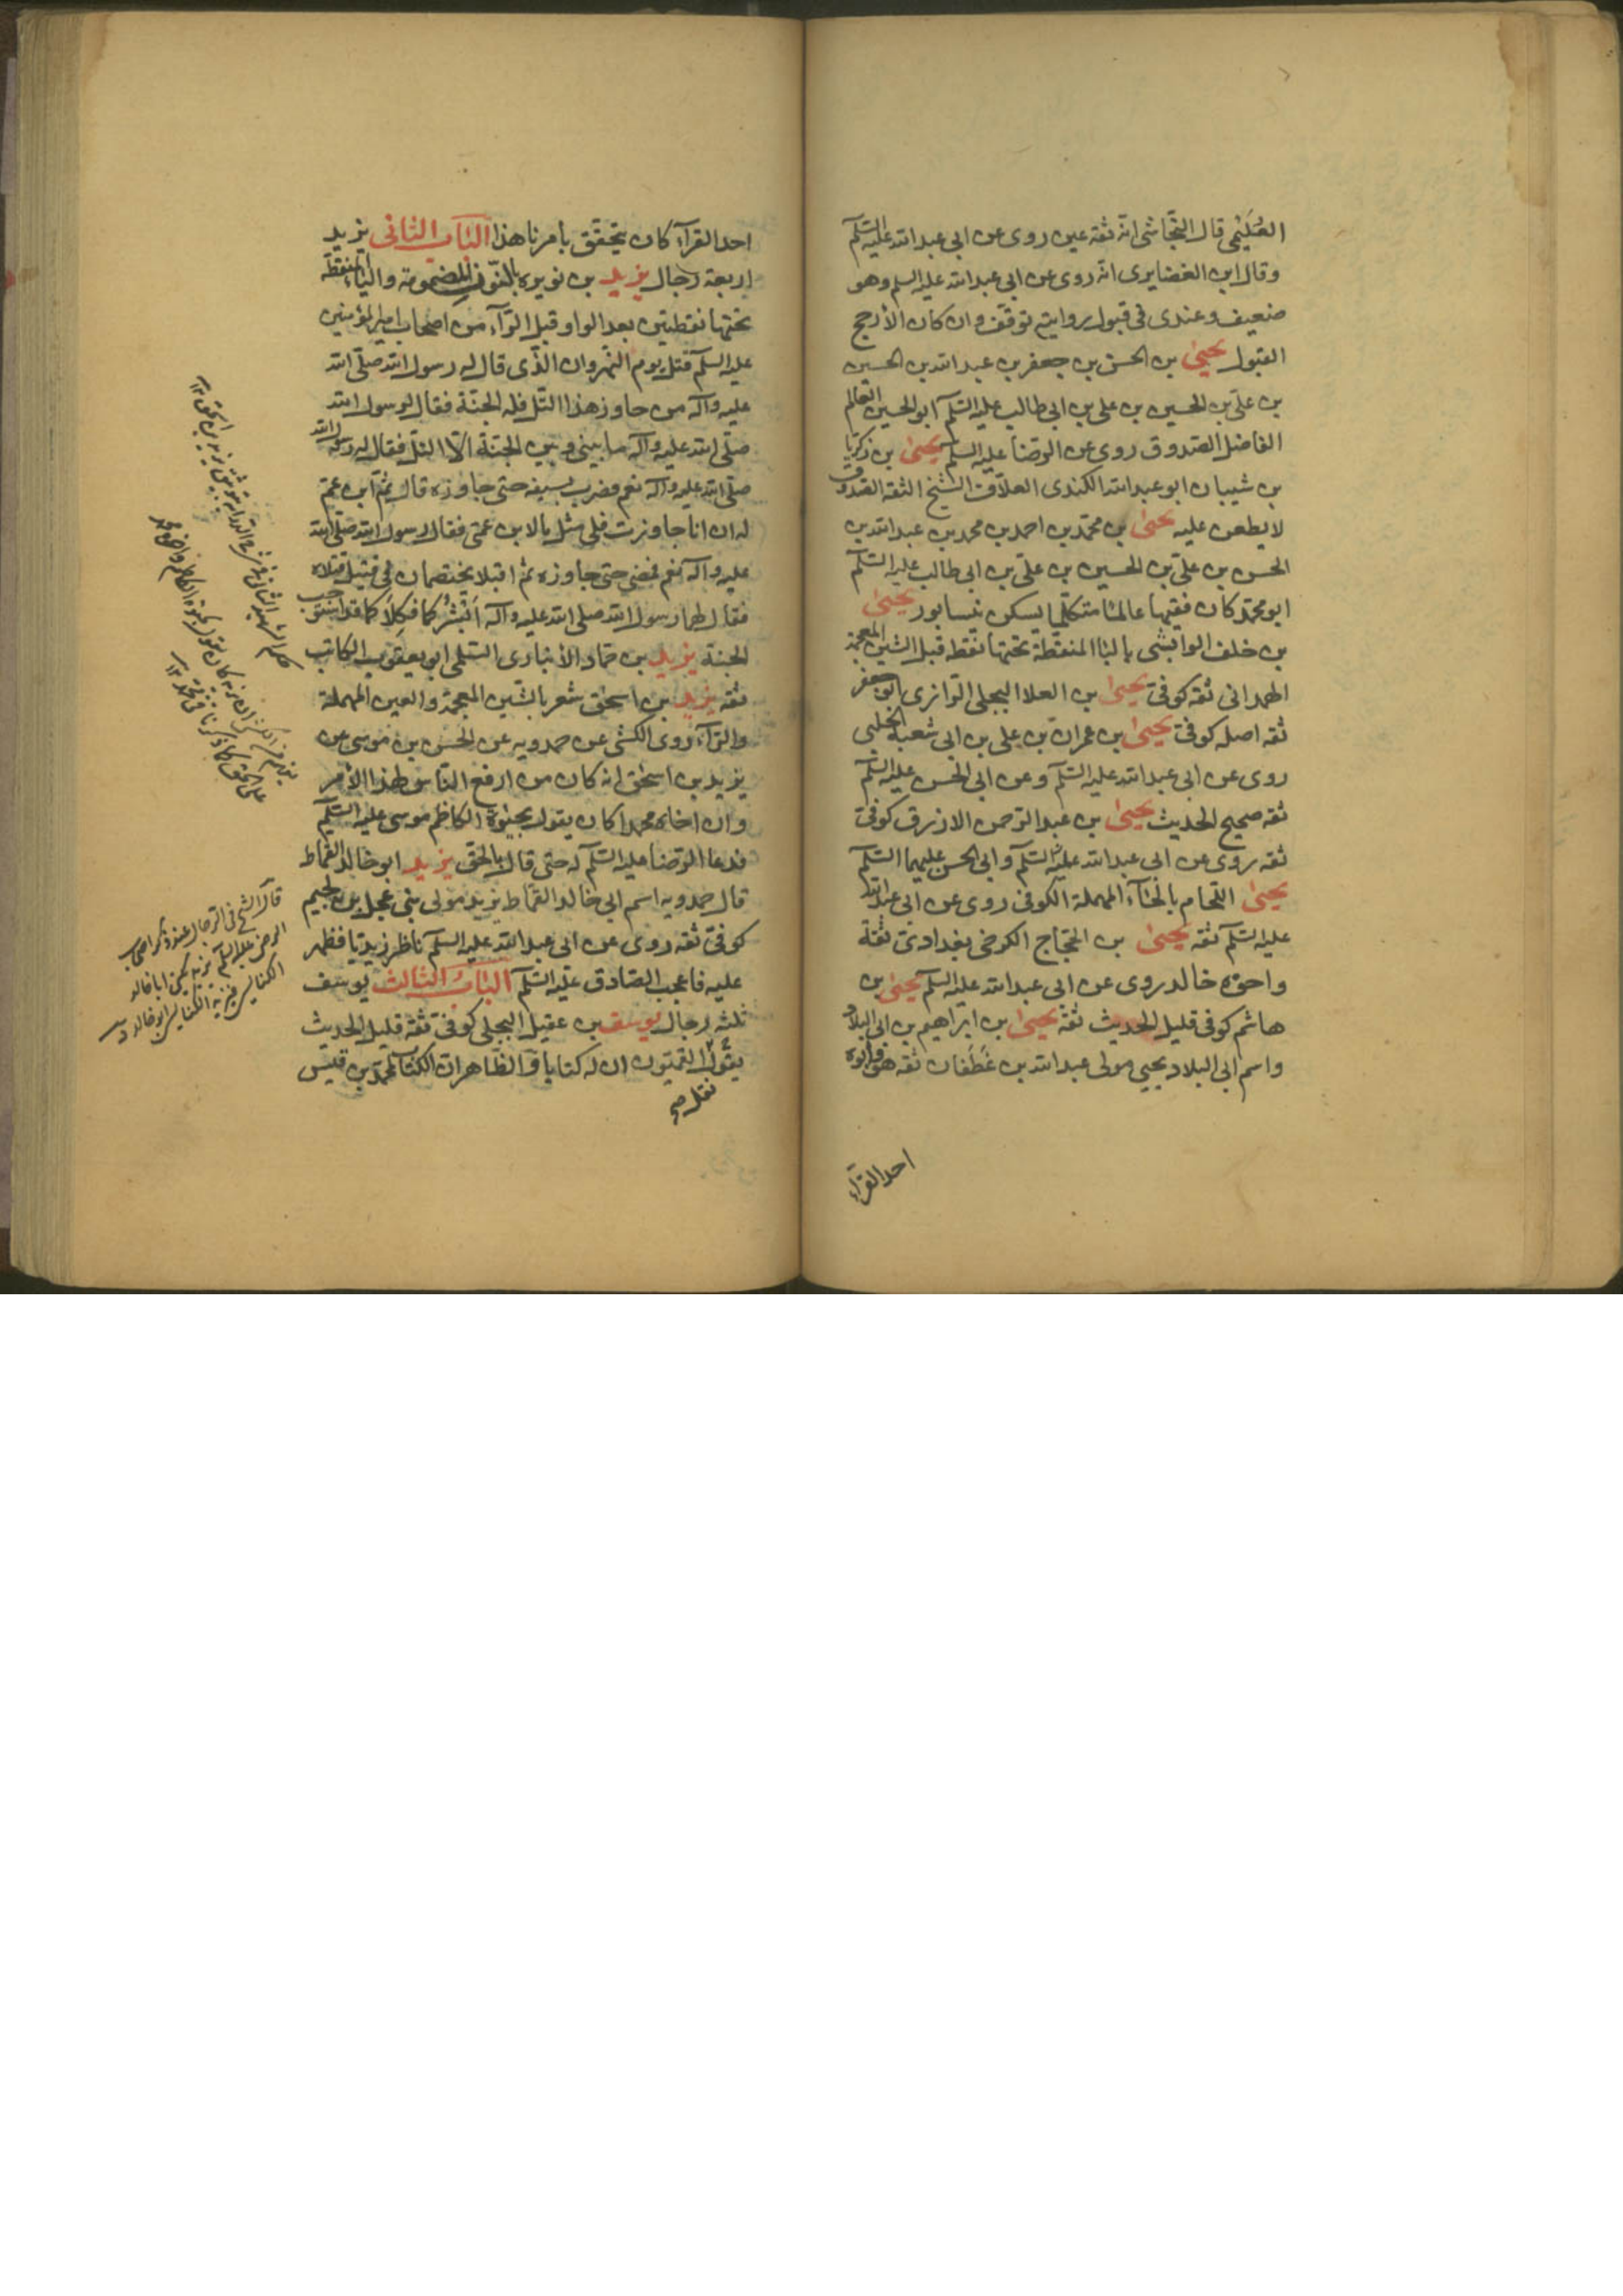 العُلَيْمى قال النجّاشى انّه ثقة عين روى عن ابى عبد الله عليه السّلم
وقال ابن الغضايرى انّه روى عن ابى عبد الله عليه السلم وهو
ضعيف وعندى فى قبول روايته توقف وان كان الأرجح
القبول يحيىٰ بن الحسن بن جعفر بن عبد الله بن الحسين
بن علىّ بن الحسين بن على بن ابى طالب عليه السّلم ابو الحسين العالم
الفاضل الصّدوق روى عن الرضا عليه السلم يحيىٰ بن زكريّا
بن شيبان ابو عبد الله الكندى العلّاف الشّيخ الثقة الصّدوق
لا يطعن عليه يحيىٰ بن محمّد بن احمد بن محمد بن عبد الله بن
الحسن بن علىّ بن الحسين بن علىّ بن ابى طالب عليه السّلم
ابو محمّد كان فقيها عالمًا متكلّما يسكن نيسابور يحيىٰ
بن خلف الوابشى بالباء المنقطة تحتها نقطة قبل الشّين المعجمة
الهمدانى ثقة كوفىّ يحيىٰ بن العلا البجلى الرّازى ابو جعفر
ثقة اصله كوفىّ يحيىٰ بن عمران بن على بن ابى شعبة الحلبى
روى عن ابى عبد الله عليه السّلم وعن ابى الحسن عليه السّلم
ثقة صحيح الحديث يحيىٰ بن عبد الرّحمن الازرق كوفىّ
ثقة روى عن ابى عبد الله عليه السّلم وابى الحسن عليهما السّلم
يحيىٰ اللحّام بالحآء المهملة الكوفى روى عن ابى عبد الله
عليه السّلم ثقة يحيىٰ بن الحجّاج الكرخى بغدادىّ ثقة
واخوه خالد روى عن ابى عبد الله عليه السّلم يحيىٰ بن
هاشم كوفى قليل الحديث ثقة يحيىٰ بن ابراهيم بن ابى البلاد
واسم ابى البلاد يحيى مولى عبد الله بن غَطَفان ثقة هو وابوه
احد القرّآء
احد القرآء كان يتحقّق بامرنا هذا الباب الثانى يزيد
اربعة رجال يزيد بن نويره بالنّون المضمومة والياء المنقطة
تحتها نقطتين بعد الواو قبل الرّآء من اصحاب امير المؤمنين
عليه السّلم قتل يوم النّهروان الذّى قال له رسول الله صلّى الله
عليه وآله من جاوز هذا التّل فله الجنّة فقال لرسول الله
صلّى الله عليه وآله ما بينى وبين الجنّة الّا التلّ فقال له رسول الله
صلّى الله عليه وآله نعم فضرب بسيفه حتى جاوزه قال ثمّ ابن عمّ
له ان انا جاوزت فلى مثل ما لابن عمّى فقال رسول الله صلّى الله
عليه وآله نعم فمضى حتى جاوزه ثم اقبلا يختصمان فى قتيل قتلاه
فقال لهما رسول الله صلى الله عليه وآله اَبْشِرْا كما فكِلا كما قد استوجب
الجنة يزيد بن حمّاد الأنبارى السّلمى ابو يعقوب الكاتب
ثقه يزيد بن اسحق شعر بالشّين المعجمة والعين المهملة
والرّآء روى الكشى عن حمدويه عن الحسن بن موسى عن
يزيد بن اسحٰق انه كان من ارفع النّاس لهذا الأمر
وان اخاه محمدا كان يقول بحيٰوة الكاظم موسى عليه السّلم
فدعا الرّضا عليه السّلم له حتى قال بالحقّ يزيد ابو خالد القمّاط
قال حمدويه اسم ابى خالد القمّاط يزيد مولى بنى عجل بن لجيم
كوفىّ ثقه روى عن ابى عبد الله عليه السلم ناظر زيديّا فظهر
عليه فاعجب الصّادق عليه السّلم الباب الثالث يوسف
ثلثه رجال يوسف بن عقيل البجلى كوفىّ ثقة قليل الحديث
يقول القميّون ان له كتابا قال الظّاهر ان الكتاب لمحمّد بن قيس
نقل
قال الشّيخ فى الرجال عند ذكر اصحاب
الرضا عليه السلم يزيد يكنى ابا خالد